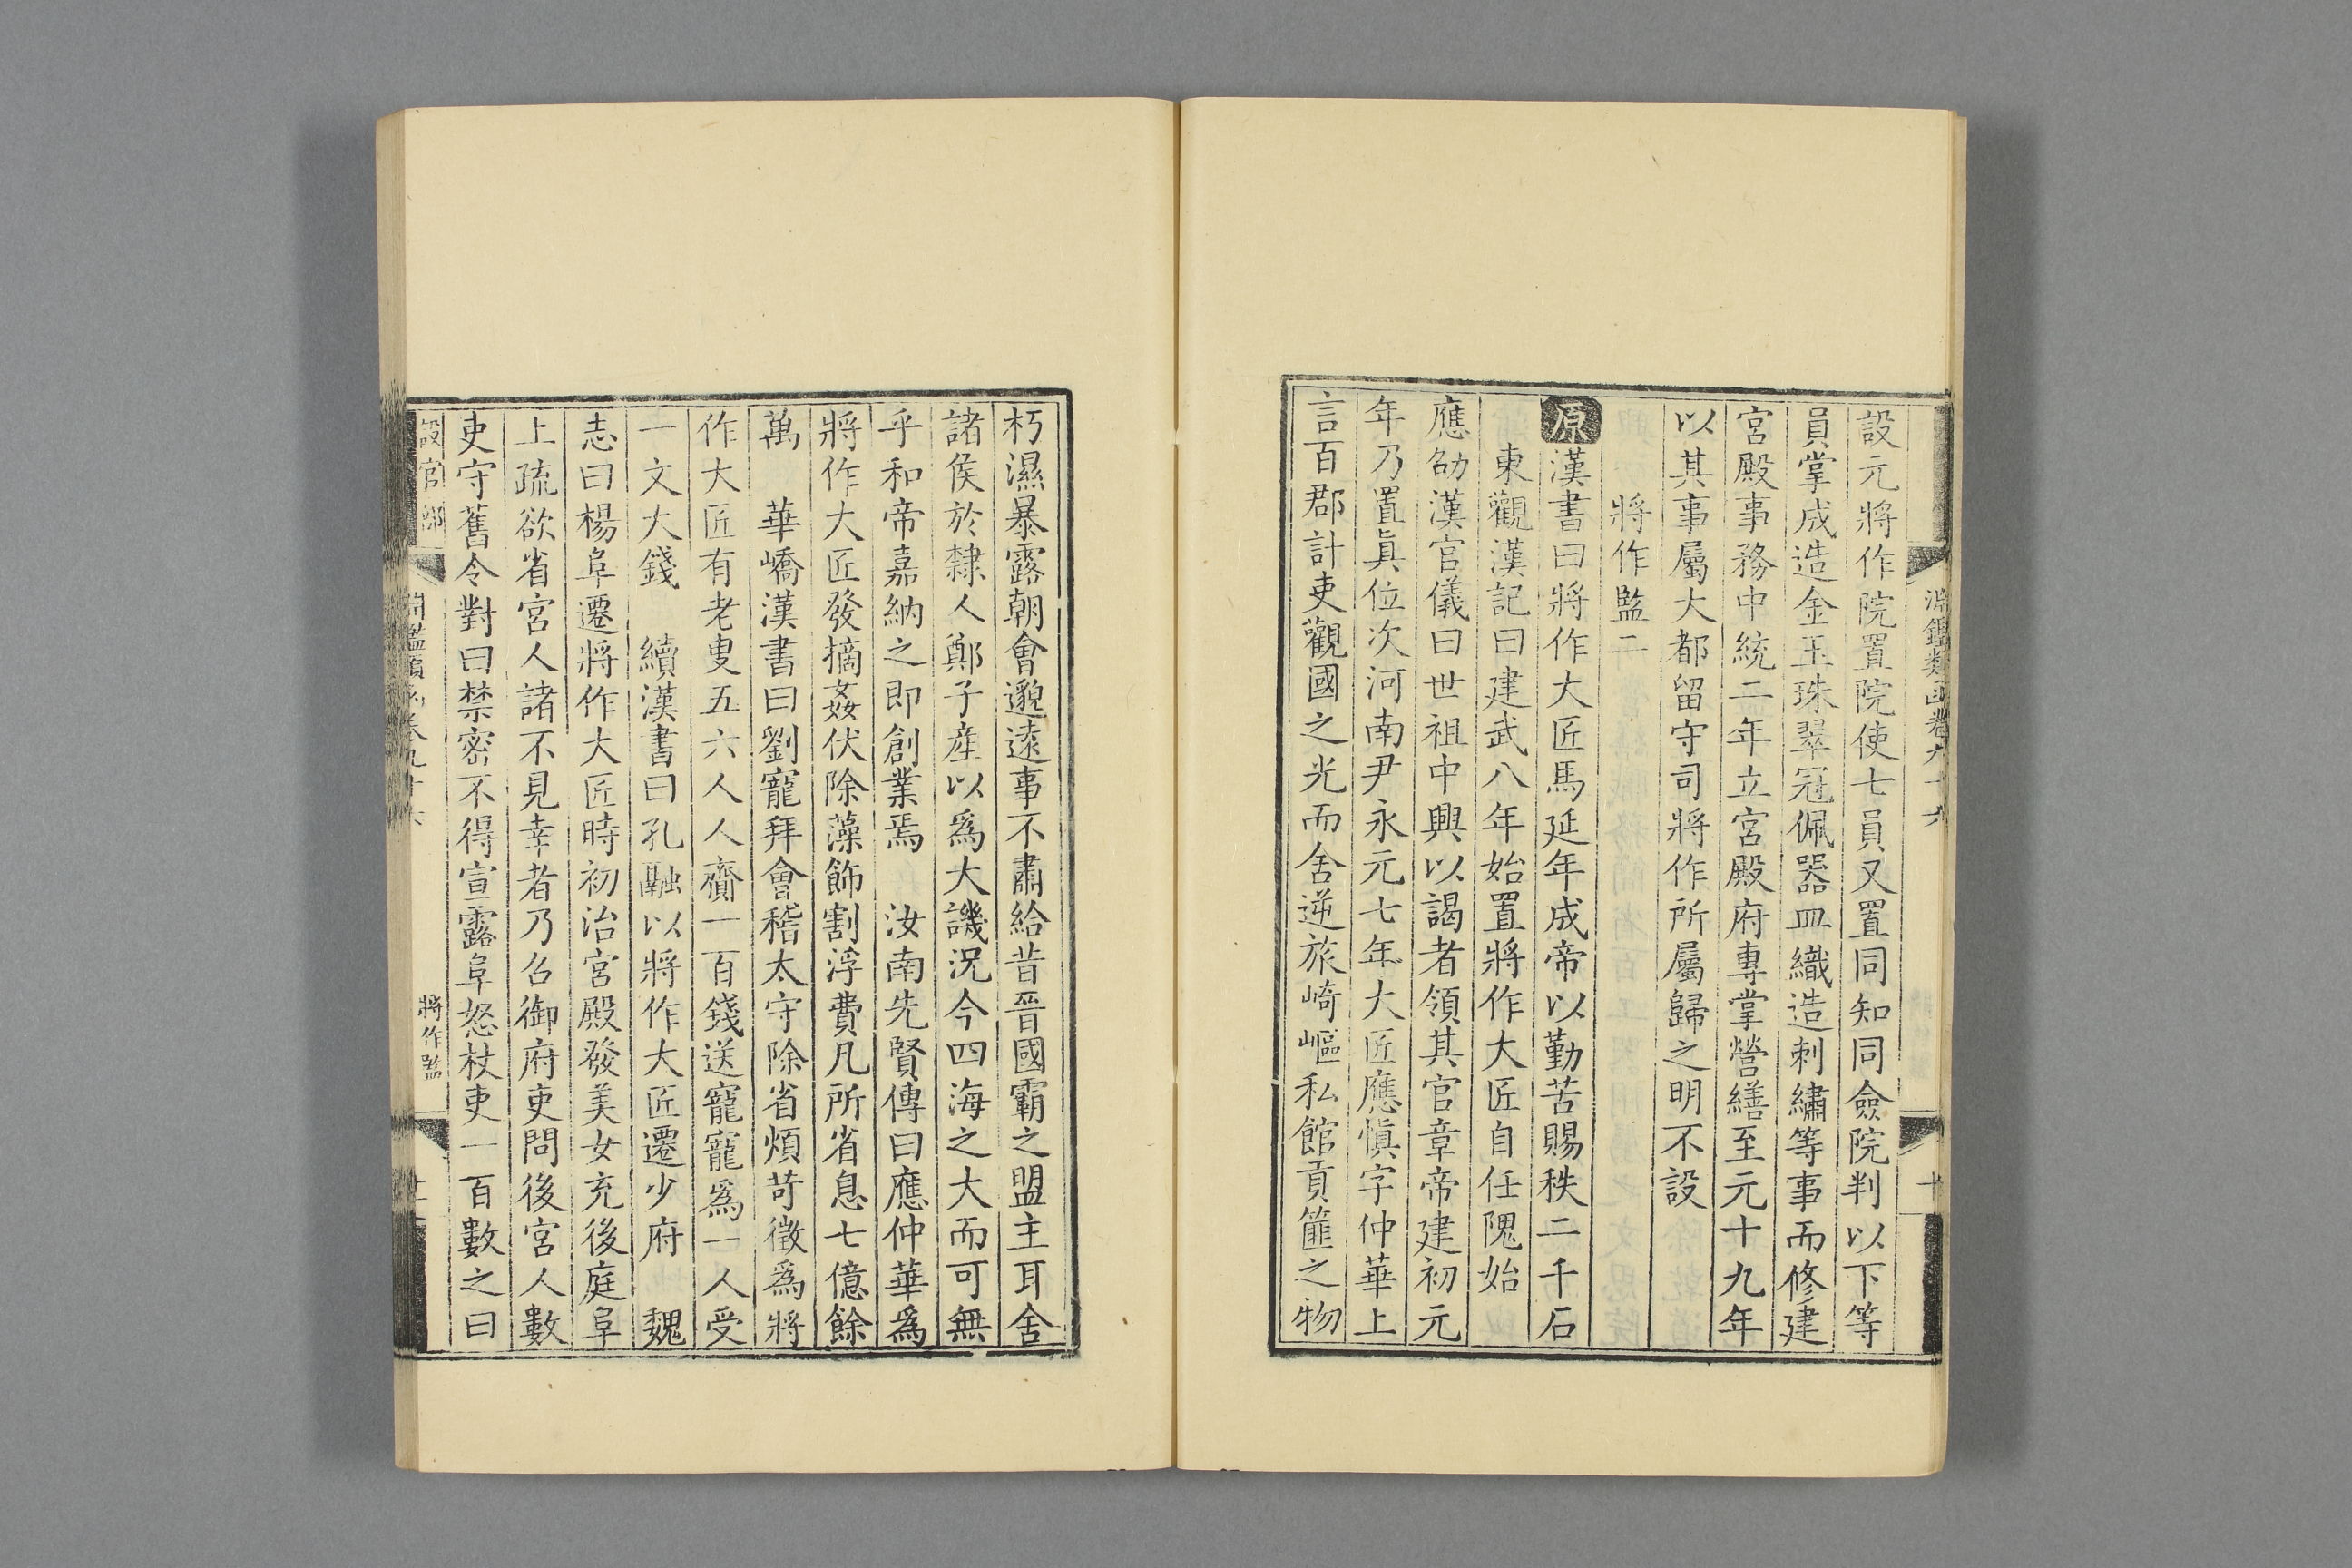 淵鑑類函卷九十六
十
設元將作院置院使七員又置同知同僉院判以下等
員掌成造金玉珠翠冠佩器皿織造刺繡等事而修建
宮殿事務中統二年立宮殿府專掌營繕至元十九年
以其事屬大都留守司將作所屬歸之明不設
將作監二
原漢書曰將作大匠馬延年成帝以勤苦賜秩二千石
東觀漢記曰建武八年始置將作大匠自任隗始
應劭漢官儀曰世祖中興以謁者領其官章帝建初元
年乃置眞位次河南尹永元七年大匠應愼字仲華上
言百郡計吏觀國之光而舍逆旅崎嶇私館貢篚之物
朽濕暴露朝會邈遠事不肅給昔晉國霸之盟主耳舍
諸侯於隸人鄭子産以爲大譏況今四海之大而可無
乎和帝嘉納之即創業焉 汝南先賢傳曰應仲華爲
將作大匠發摘姦伏除藻飾割浮費凡所省息七億餘
萬 華嶠漢書曰劉寵拜會稽太守除省煩苛徵爲將
作大匠有老叟五六人人齎一百錢送寵寵爲一人受
一文大錢 續漢書曰孔融以將作大匠遷少府 魏
志曰楊阜遷將作大匠時初治宮殿發美女充後庭阜
上疏欲省宮人諸不見幸者乃召御府吏問後宮人數
吏守舊令對曰禁密不得宣露阜怒杖吏一百數之曰
設官部
將作監